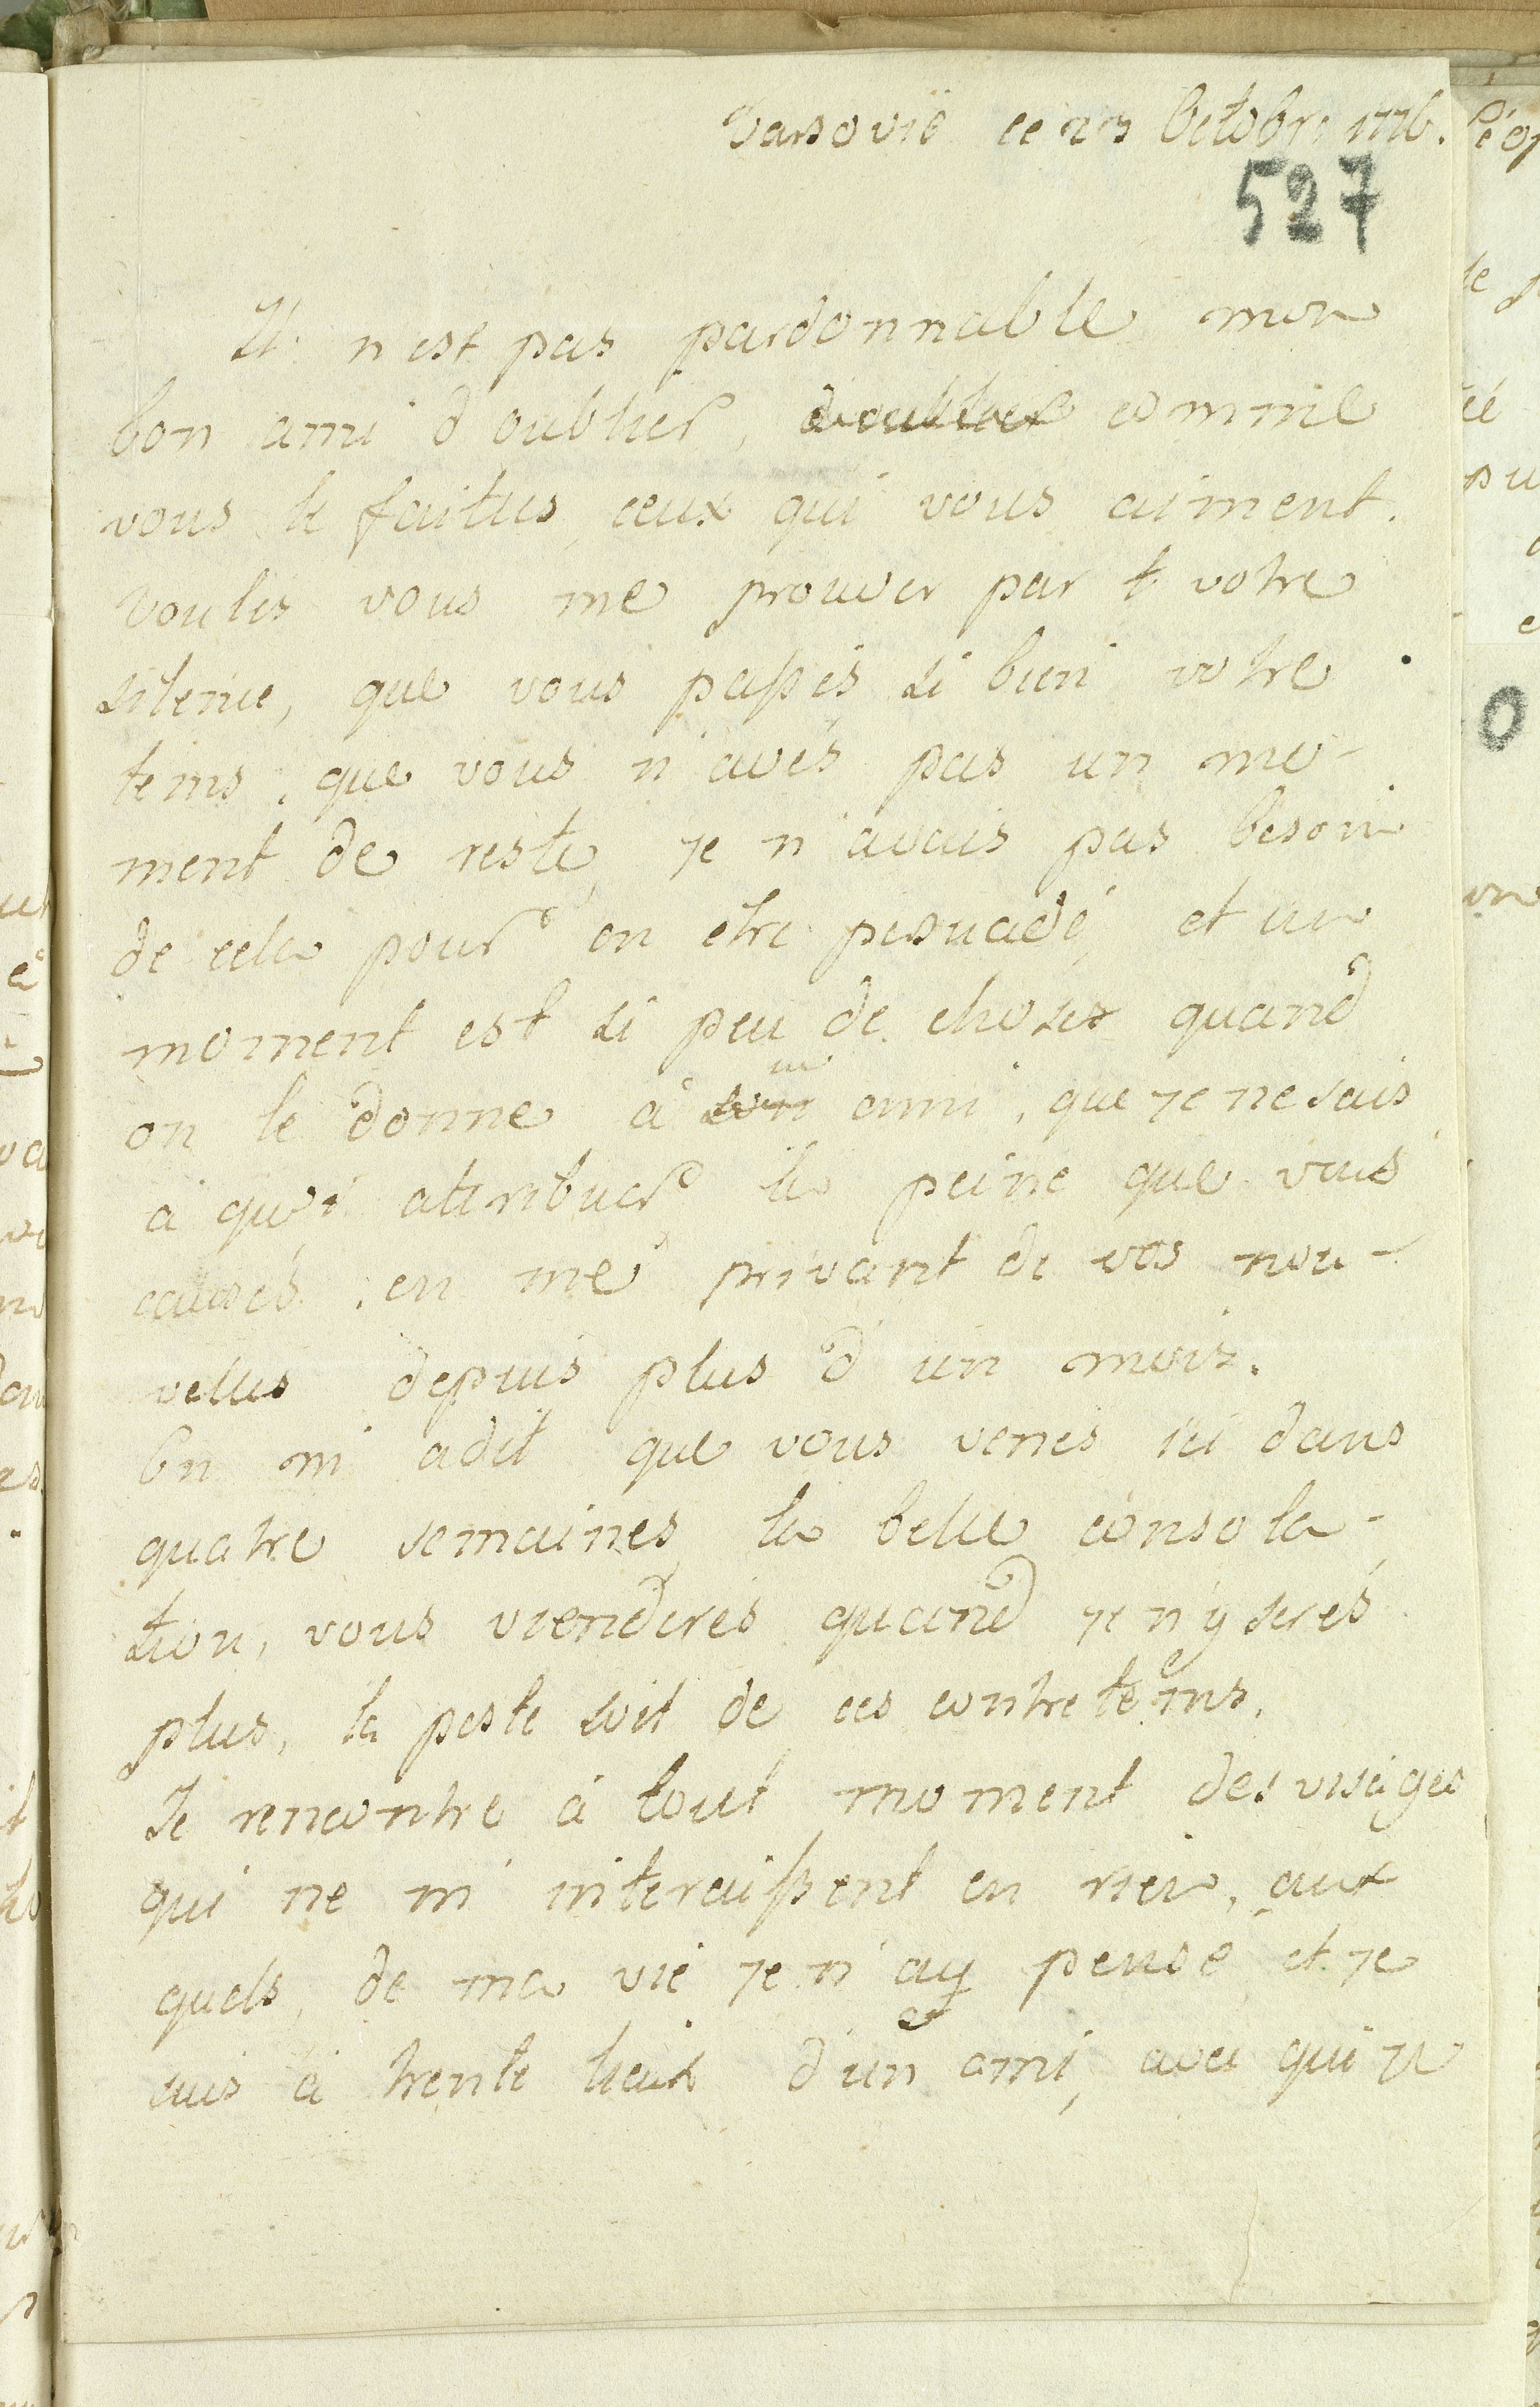 Varsovie ce 23 Octobre 1776.
527
Il n'est pas pardonnable mon
bon ami d'oublier, d'oublier comme
vous le faittes, ceux qui vous aiment.
voulés vous me prouver par votre
silence, que vous passés si bien votre
tems, que vous n'avés pas un mo-
ment de reste, je n'avais pas besoin
de cela pour en être persuadé, et un
moment est si peu de choses quand
on le donne à son un ami, que je ne sais
à qui attribuer la peine que vous
causés, en me privant de vos nou-
velles depuis plus d'un mois.
On m'a dit que vous venés ici dans
quatre semaines, la belle consola-
tion, vous vienderés quand je n'y serés
plus, la peste soit de ces contretems.
Je rencontre à tout moment des visages
qui ne m'interaissent en rien, aux
quels, de ma vie je n'ay pensé, et je
suis à trente lieux d'un ami, avec qui je